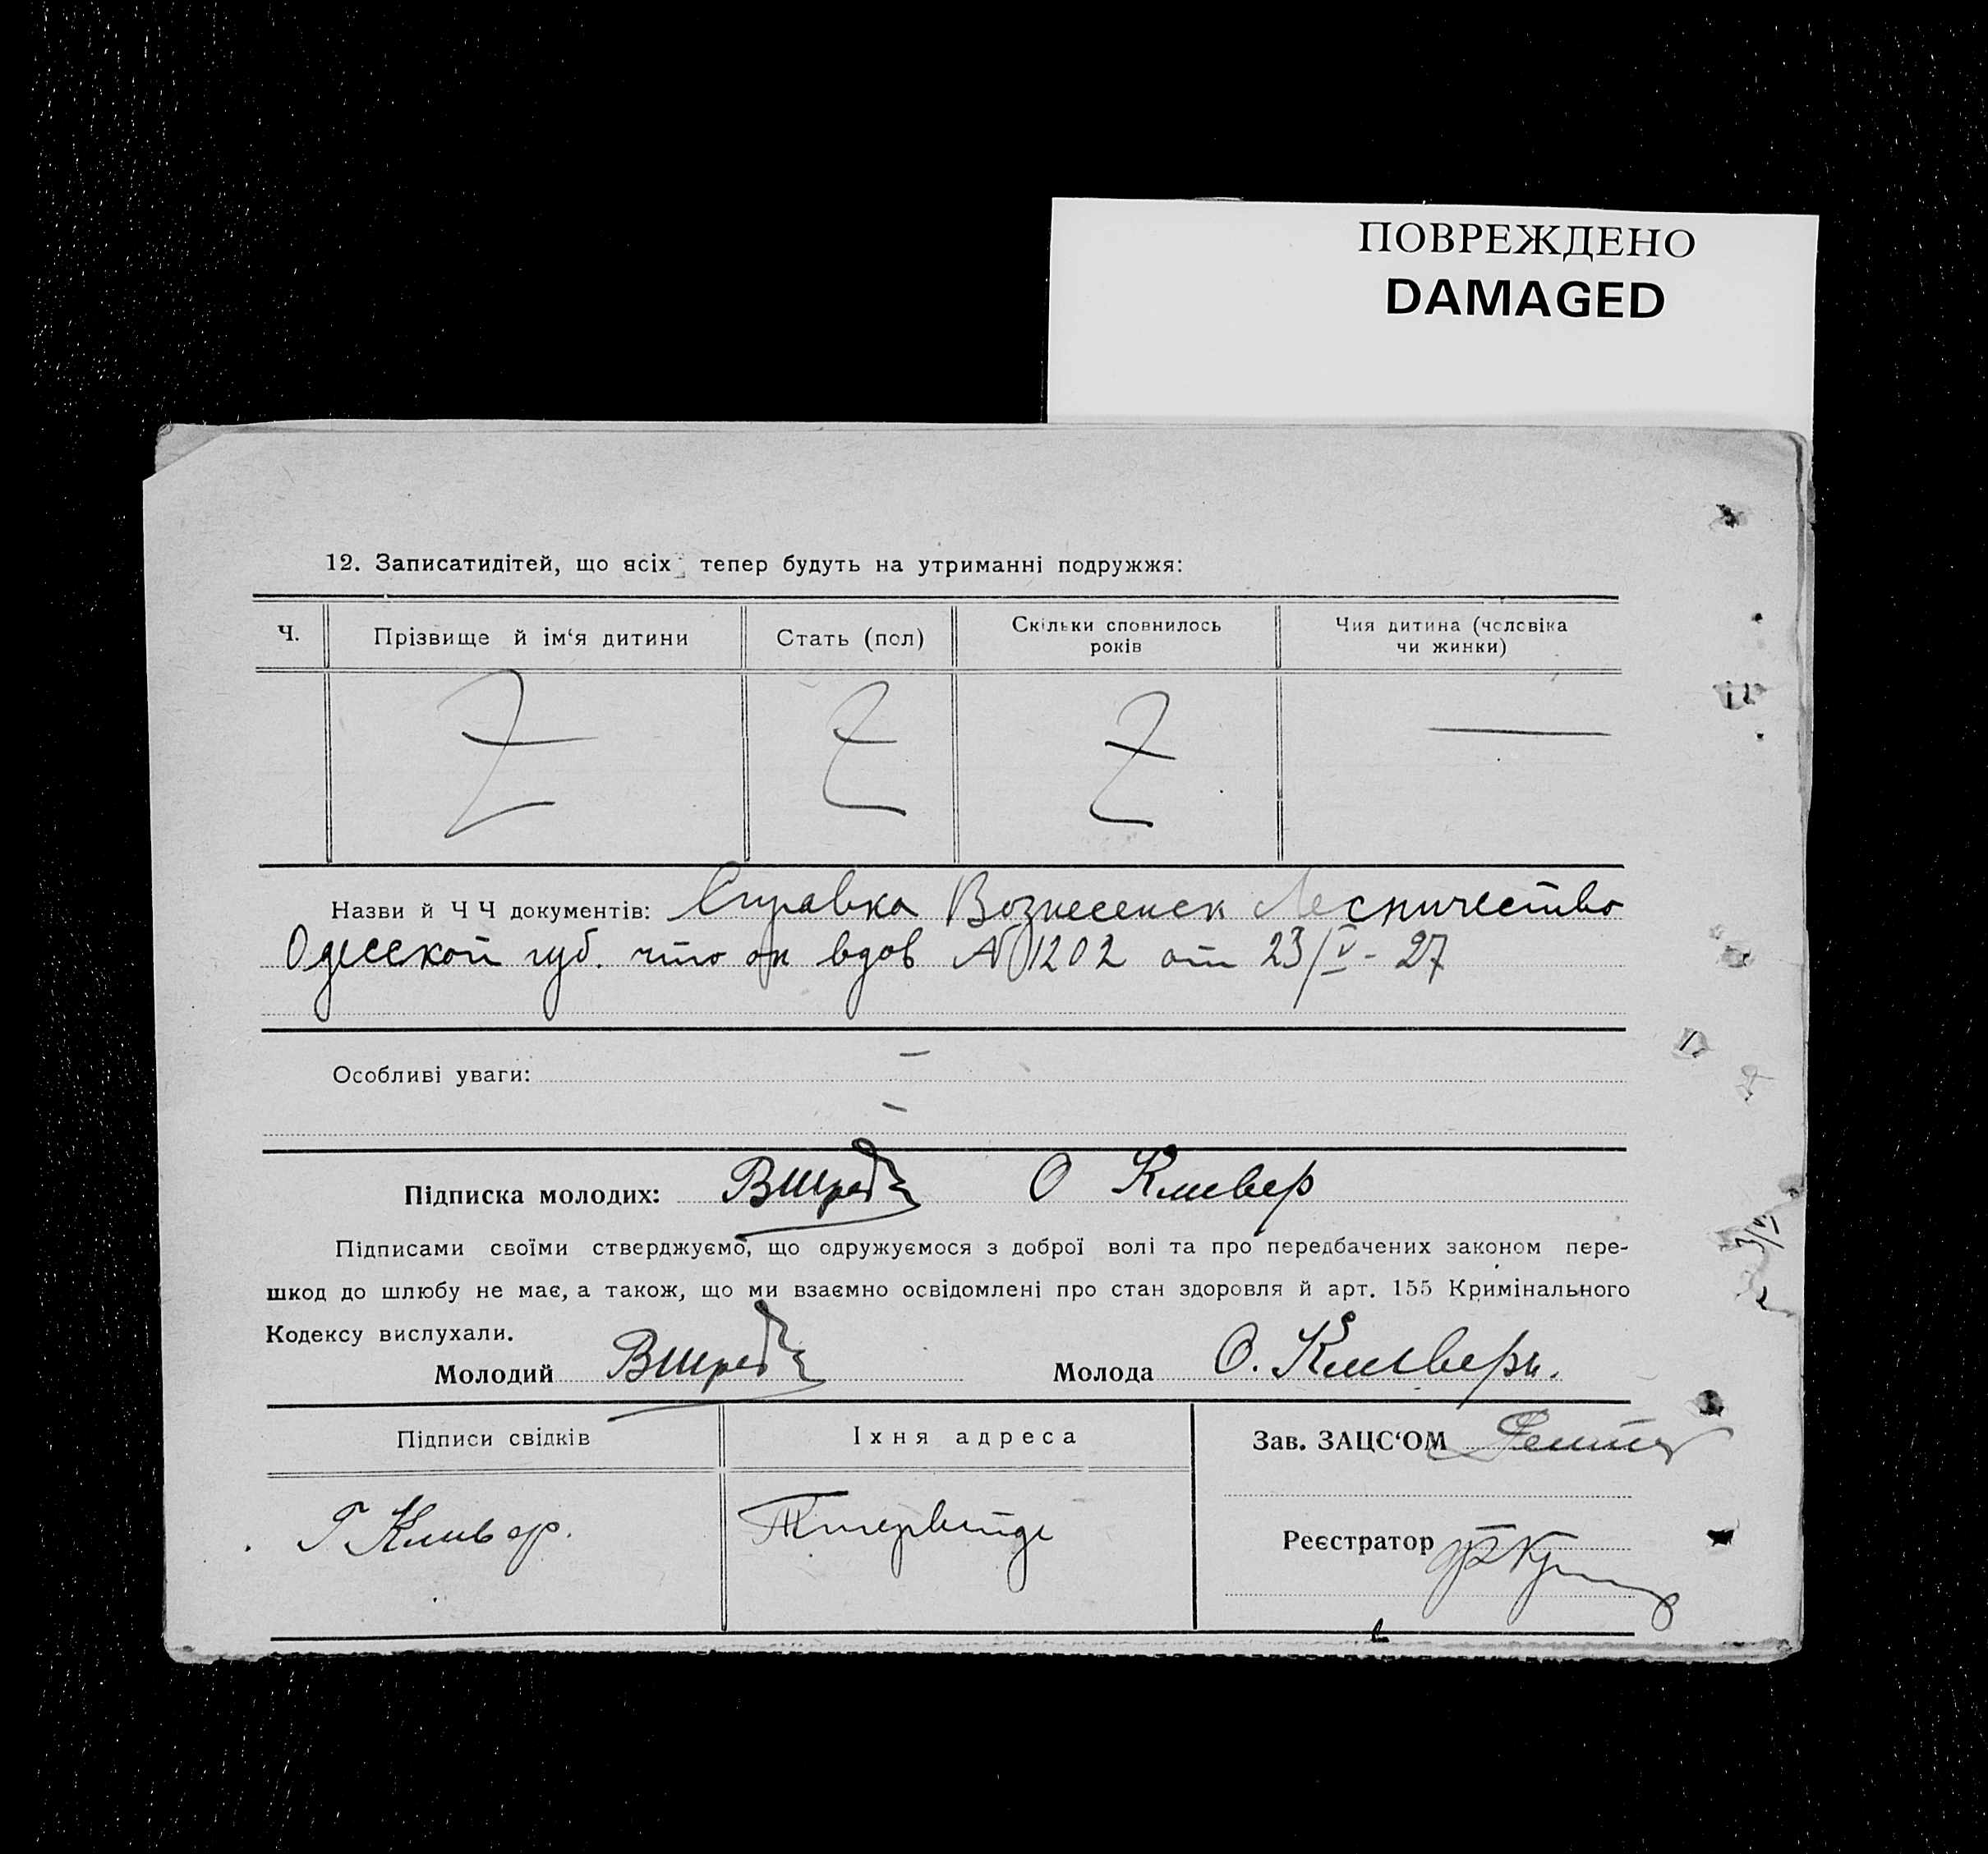 ПОВРЕЖДЕНО
DAMAGED
12. Записатидітей, що всіх тепер будуть на утриманні подружжя:
Ч.
Прізвище й ім‘я дитини
Стать (пол)
Скільки сповнилось
років
Чия дитина (чоловіка
чи жинки)
Назви й Ч Ч документів: Справка Вознесенск Лесничество
Одесской губ. что он вдов № 1202 от 23/V - 27
Особливі уваги: —
—
Підписка молодих: ВШред О Кливер
Підписами своїми стверджуємо, що одружуємося з доброї волі та про передбачених законом пере-
шкод до шлюбу не має, а також, що ми взаємно освідомлені про стан здоровля й арт. 155 Кримінального
Кодексу вислухали.
Молодий ВШред Молода О. Кливеръ.
Підписи свідків
Їхня адреса
Зав. ЗАЦС‘ОМ
Г Кливер.
Реєстратор